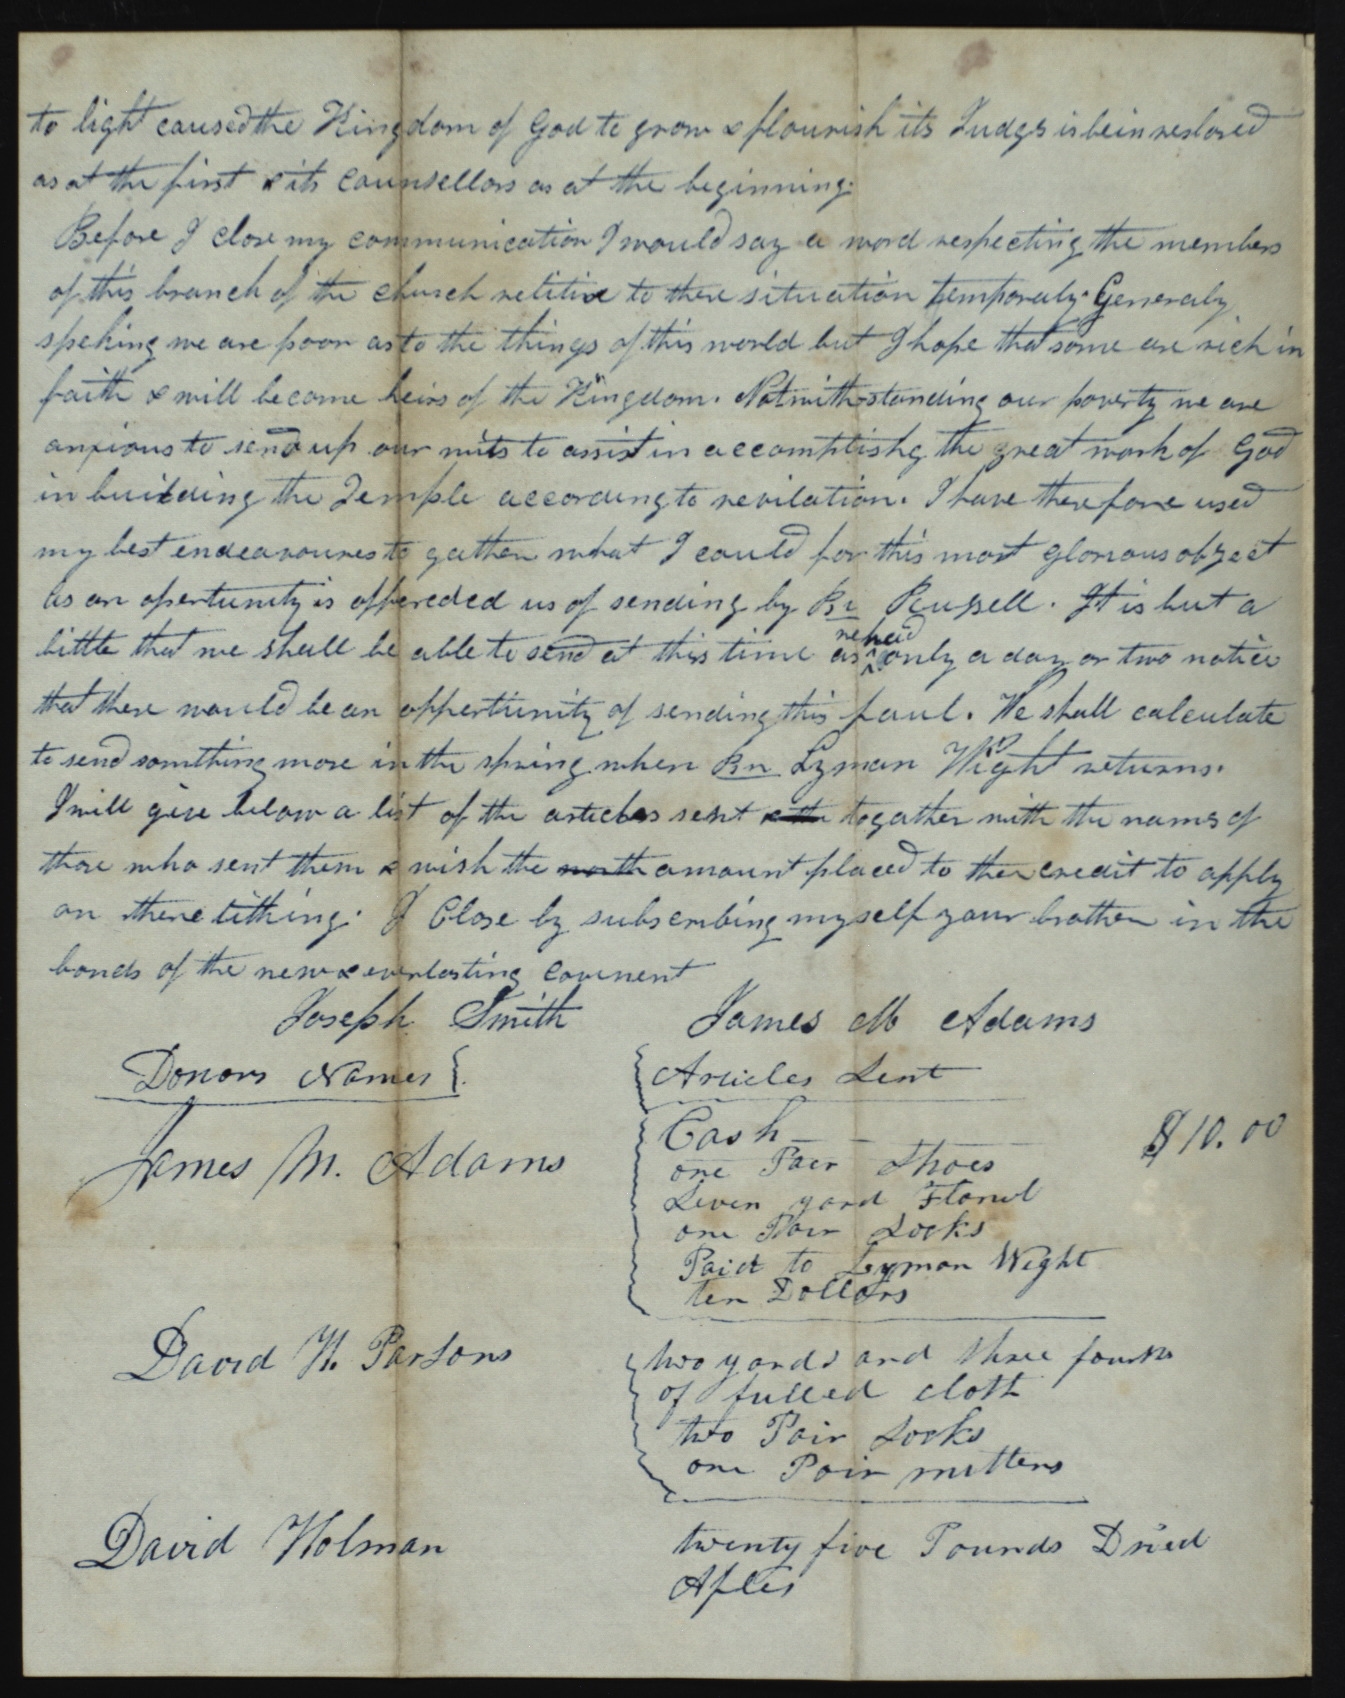 to light caused the Kingdom of God to grow & flourish its Judgs is bein restored
as at the first & its counsellors as at the beginning.
Before I close my communication I would say a word respecting the members
of this branch of the church relitive to there situation temporaly. Generaly
speking we are poor as to the things of this world but I hope that some are rich in
faith & will become heirs of the Kingdom. Notwithstanding our poverty we are
anxious to send up our mits to assist in accomplishg the great work of God
in building the Temple according to revilation. I have therefore used
my best endeavoures to gather what I could for this most glorious object
as an opertunity is offereded us of sending by Br Russell. It is but a
little that we shall be able to send at this time as only a day or two notice
that there would be an oppertunity of sending this faul. We shall calculate
to send somthing more in the spring when Bn Lyman Wight returns.
I will give below a list of the articles sent & the togather with the names of
those who sent them & wish the worth amount placed to ther credit to apply
on there tithing. I Close by subscribing myself your brother in the
bonds of the new & everlasting covenent
Joseph Smith James M Adams
Donors Names Articles Sent
James M. Adams Cash $10.00
one Pair Shoes
Seven yard Flanel
one Pair Socks
Paid to Lyman Wight
ten Dollars
David W. Parsons two yards and three fourths
of fulled cloth
two Pair Socks
one Pair mittens
David Holman twenty five Pounds Dried
Aples